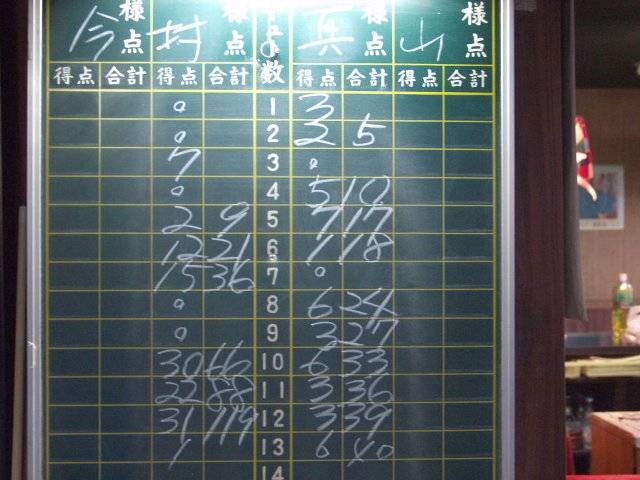 今 様点 村 様点 真 様点 山 様点
得点 合計 得点 合計 数 得点 合計 得点 合計
0 1 3
0 2 2 5
7 3 0
0 4 5 10
2 9 5 7 17
12 21 6 1 18
15 36 7 0
0 8 6 24
0 9 3 27
30 66 10 6 33
22 88 11 3 36
31 119 12 3 39
1 13 6 40
14